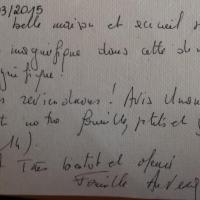 03/2015
belle maison et accueil
magnifique dans cette de
gnifique !
s reviendrons ! Avis Unan
t notre famille, petits et g
14).
Très bientôt et merci
Famille